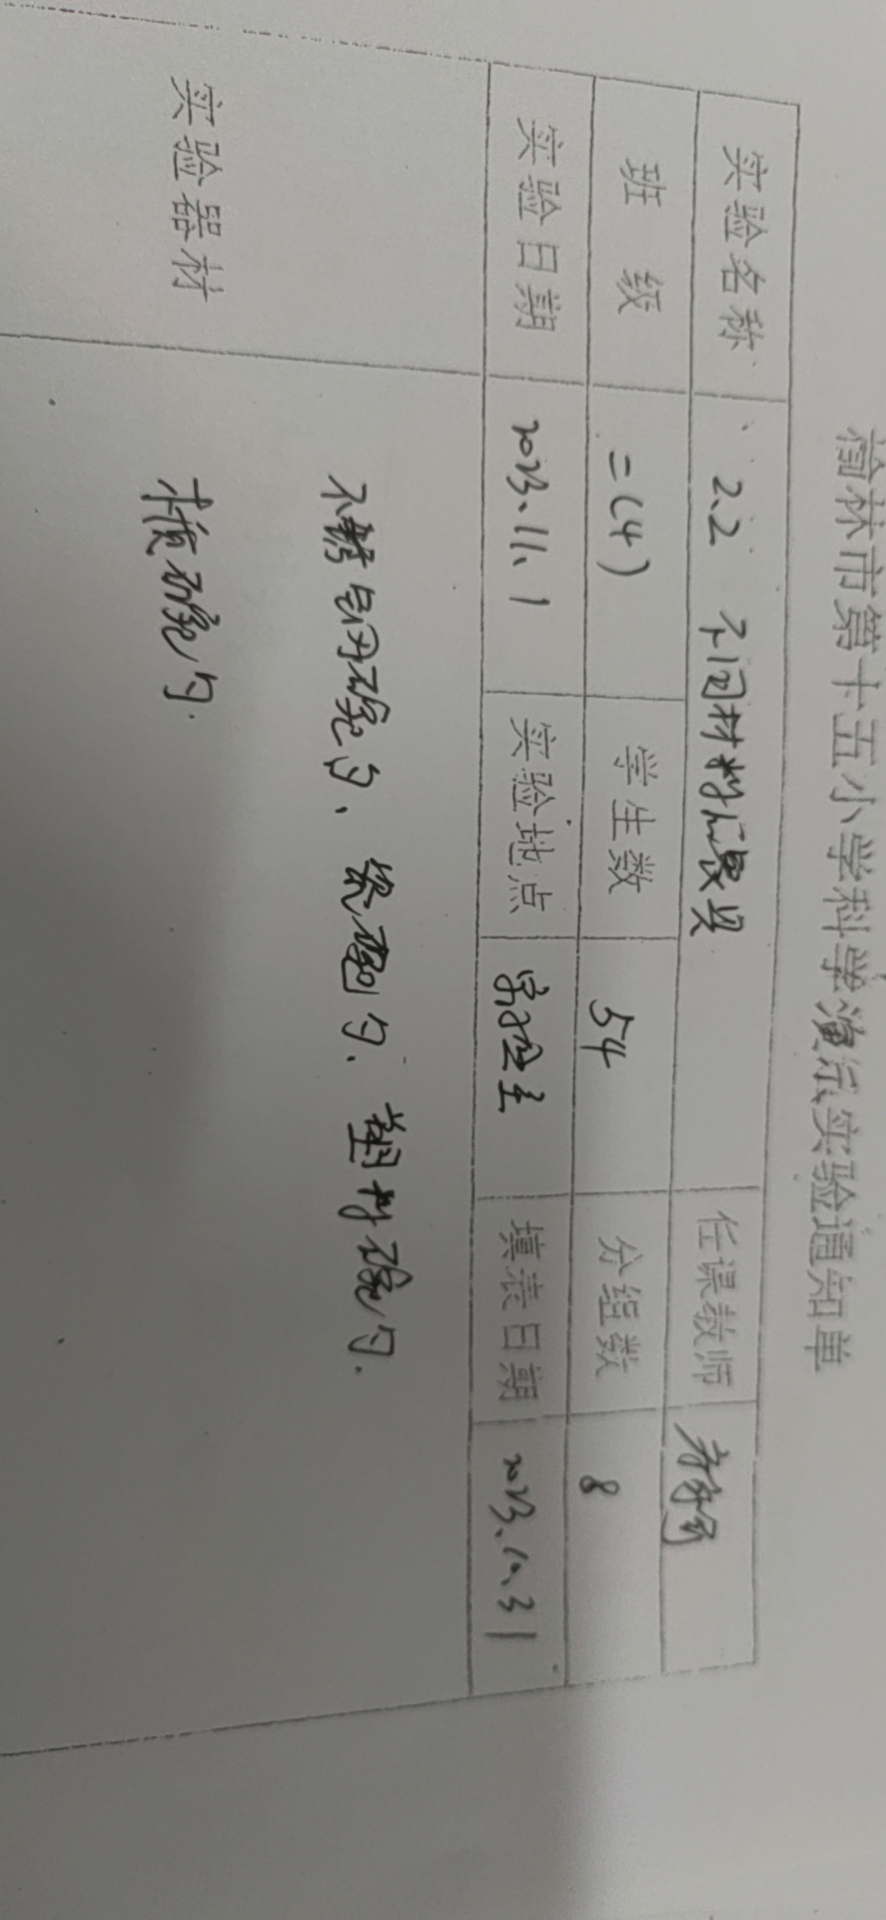 榆林市第十五小学科学演示实验通知单
实验名称 2.2 不同材料的餐具 任课教师
班 级 二(4) 学生数 54 分组数 8
实验日期 2023.11.1 实验地点 实验室 填表日期 2023.10.31
实验器材 不锈钢碗勺、瓷碗勺、塑料碗勺.
木质碗勺.